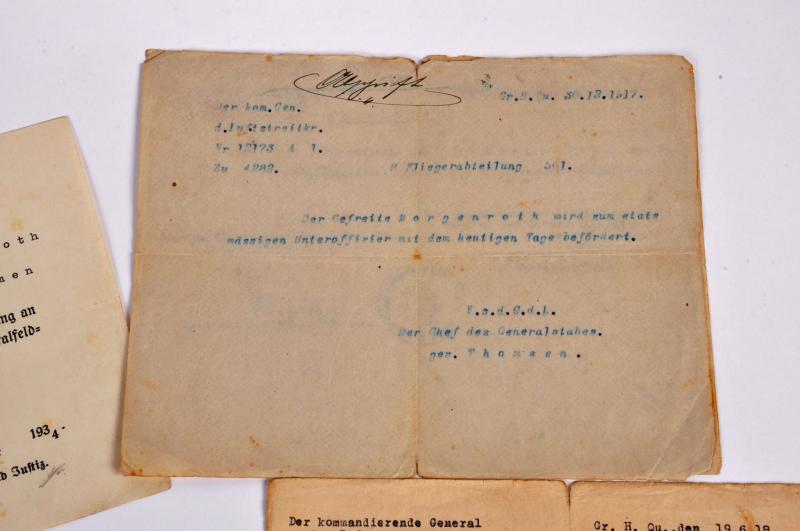 Abschrift
Gr.H.Qu. 30.12.1917.
Der kom.Gen.
d.Luftstreitkr.
Nr 12173 A 1.
Zu 4282. Fliegerabteilung 301.
Der Gefreite Morgenroth wird zum etats
mässigen Unteroffizier mit dem heutigen Tage befördert.
V.s.d.G.d.L.
Der Chef des Generalstabes.
gez. Thomsen.
oth
men
ng an
alfeld=
1934.
d Justiz.
Der kommandierende General
Gr. H. Qu., den 19.6.18